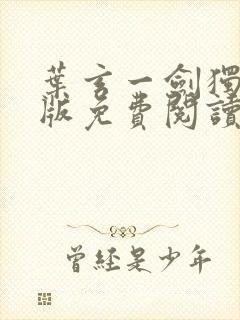 葉玄一劍獨
版免費閱讀
曾經是少年